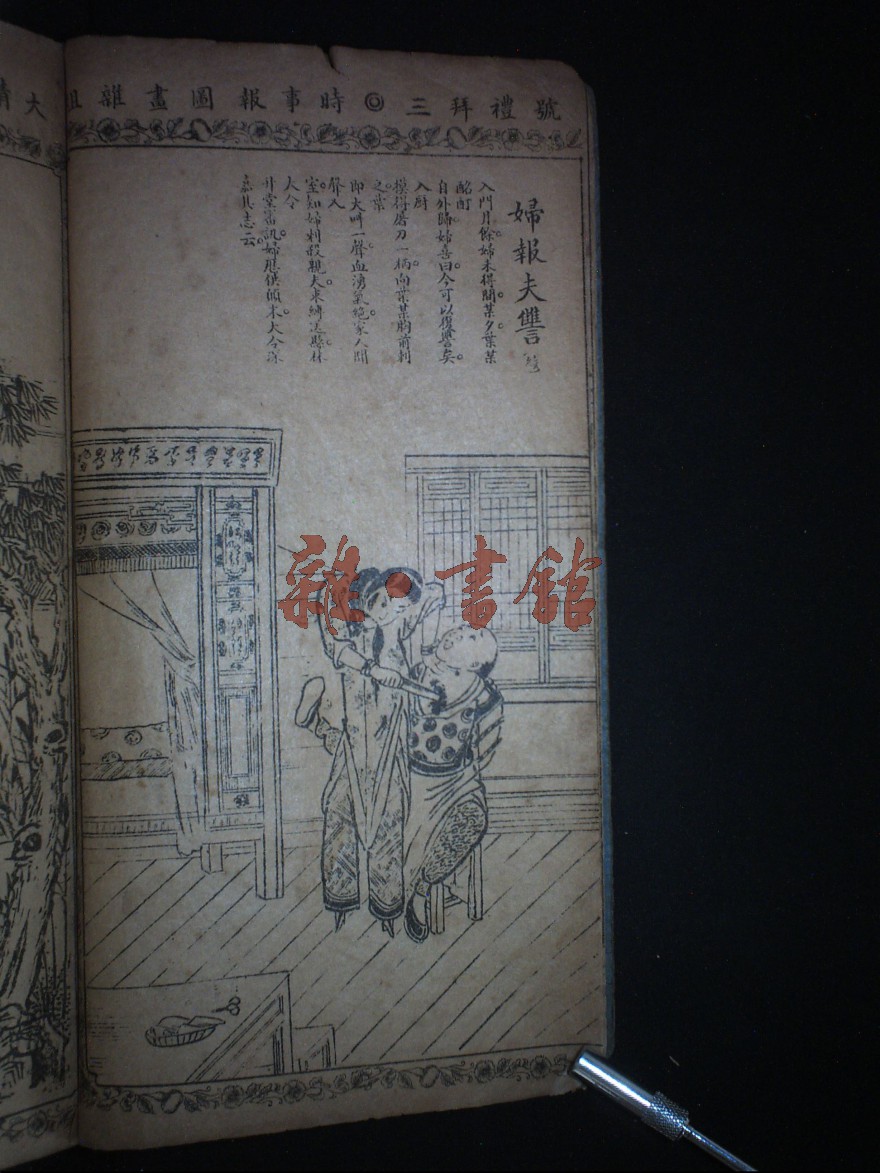 號禮拜三◎時事報圖畫雜俎
大清
婦報夫讐
入門月餘。婦未得間。某夕。葉某
酩酊
自外歸。婦喜曰。今可以復讐矣。
入厨
摸得屠刀一柄。向葉某胸前刺
之。葉
即大呌一聲。血湧氣絶。家人聞
聲入
室。知婦刺殺親夫。束縛送縣。林
大令
升堂審訊。婦歷供顛末。大令深
嘉其志云。
雜·書館